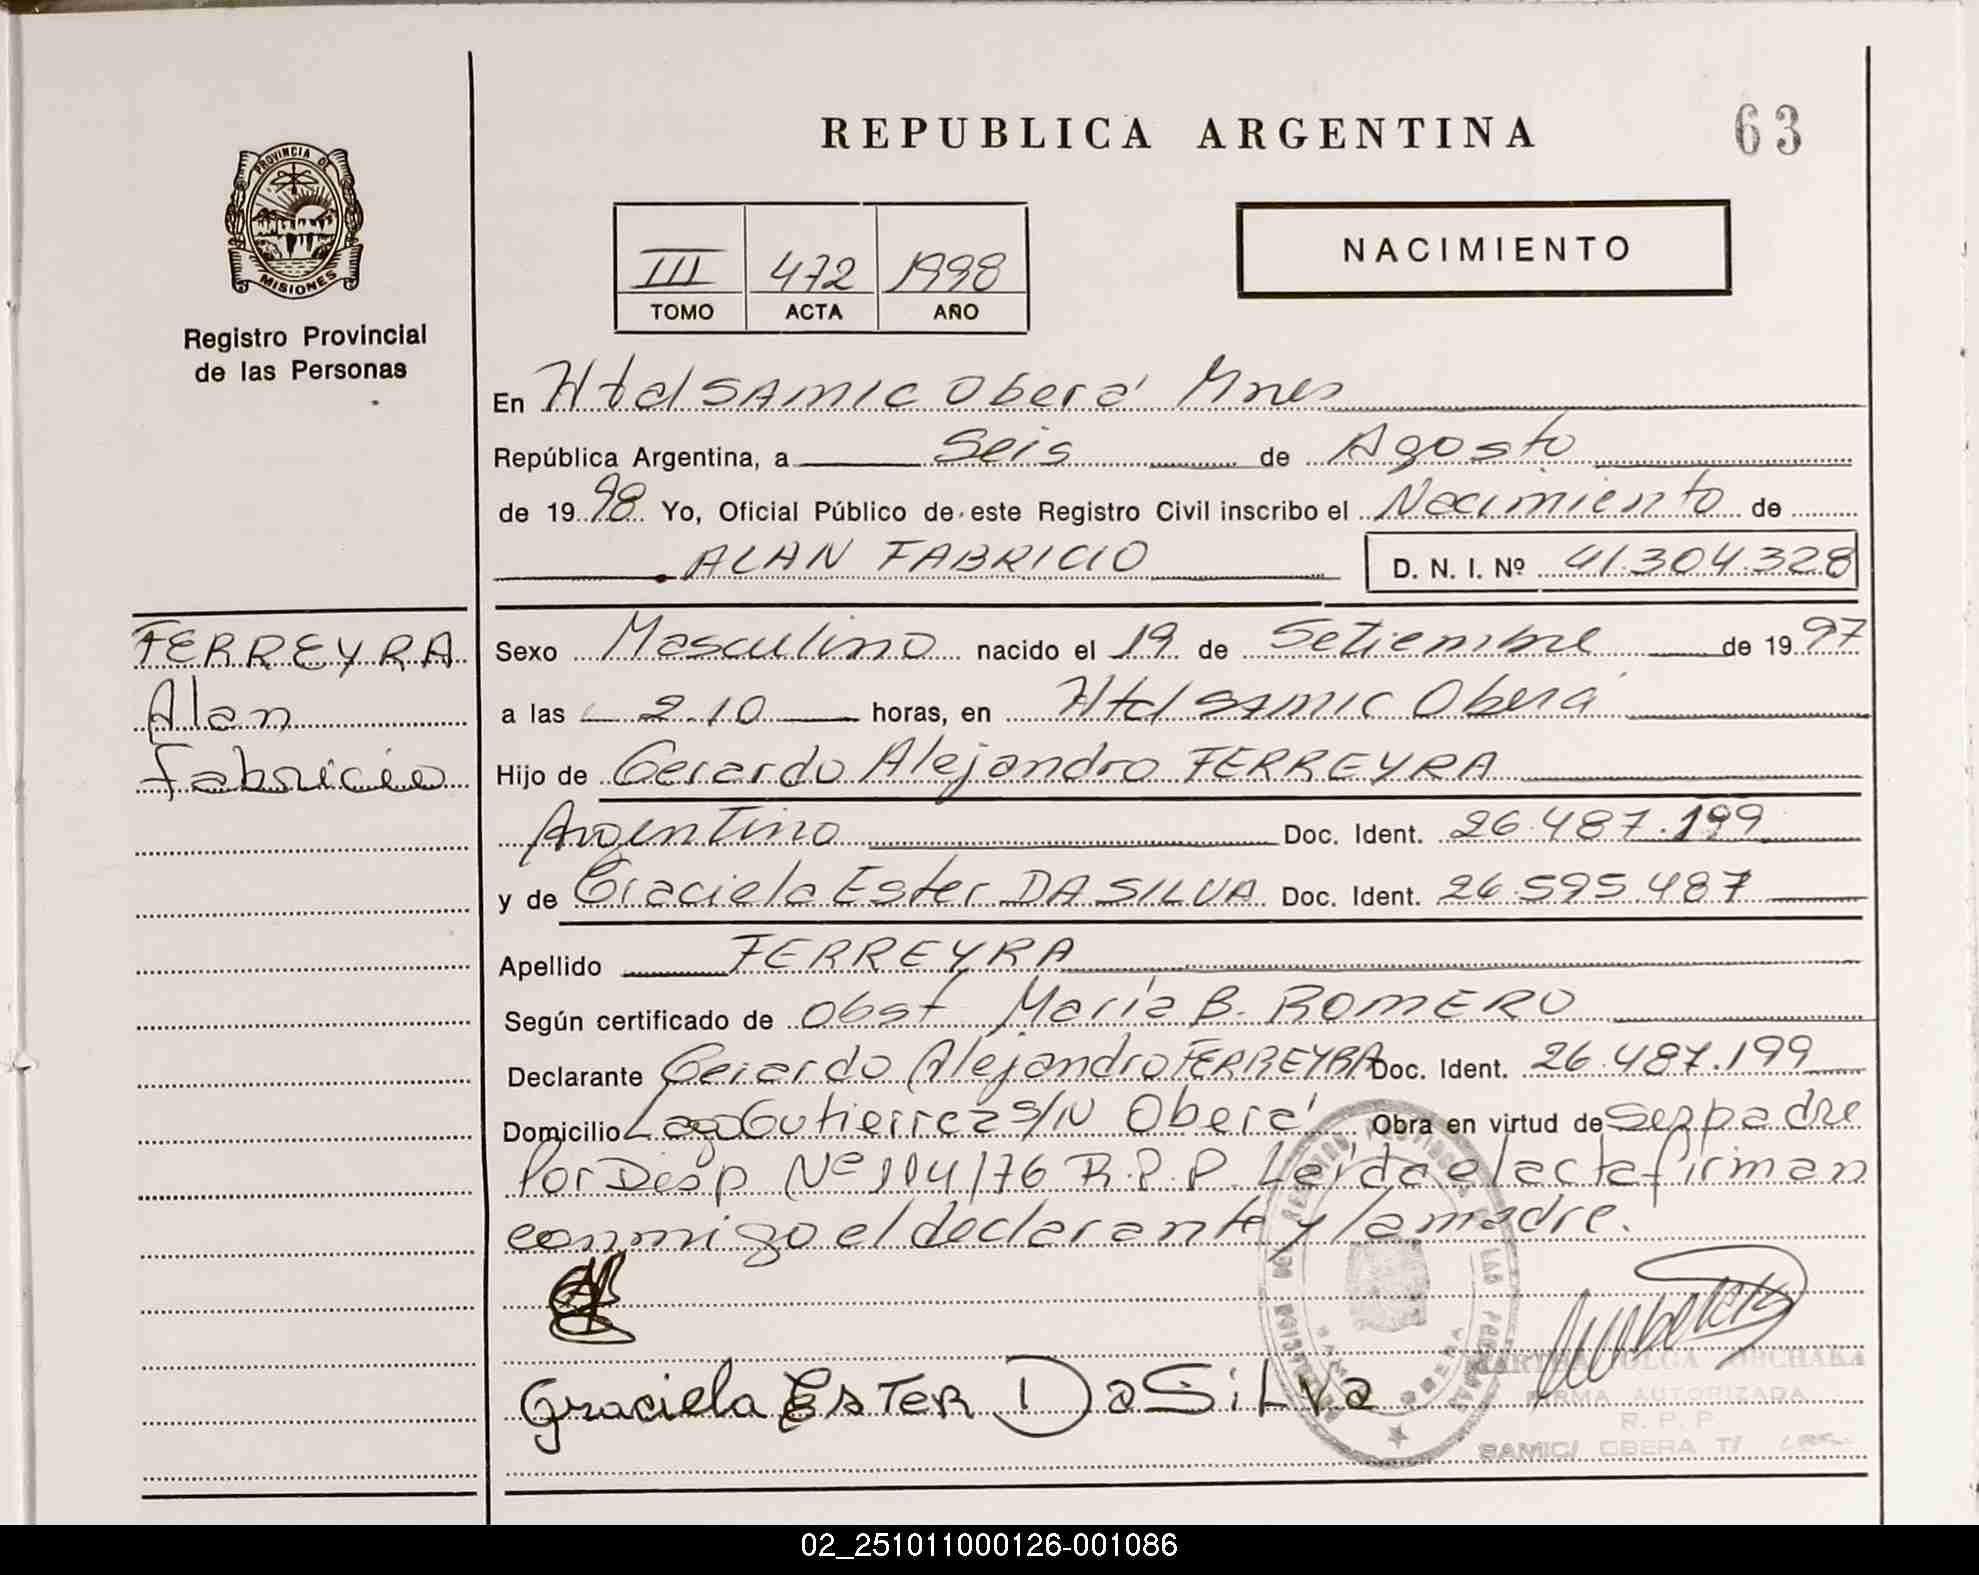 REPUBLICA ARGENTINA
63
PROVINCIA DE
MISIONES
Registro Provincial
de las Personas
III 472 1998
TOMO ACTA AÑO
NACIMIENTO
En Htal SAMIC Oberá Mnes
República Argentina, a Seis de Agosto
de 1998 Yo, Oficial Público de este Registro Civil inscribo el Nacimiento de
ALAN FABRICIO D. N. I. Nº 41.304.328
FERREYRA
Alan
Fabricio
Sexo Masculino nacido el 19 de Setiembre de 1997
a las 2.10 horas, en Htal SAMIC Oberá
Hijo de Gerardo Alejandro FERREYRA
Argentino Doc. Ident. 26.487.199
y de Graciela Ester DA SILVA Doc. Ident. 26.595.487
Apellido FERREYRA
Según certificado de Obst María B. ROMERO
Declarante Gerardo Alejandro FERREYRA Doc. Ident. 26.487.199
Domicilio Lago Gutierrez S/N Oberá Obra en virtud de ser padre
por Disp Nº 104/76 R.P.P. Leída el acta firman
conmigo el declarante y la madre.
Graciela Ester Da Silva
MARTHA OLGA
FIRMA AUTORIZADA
R. P. P.
SAMIC/ OBERA T/
02_251011000126-001086